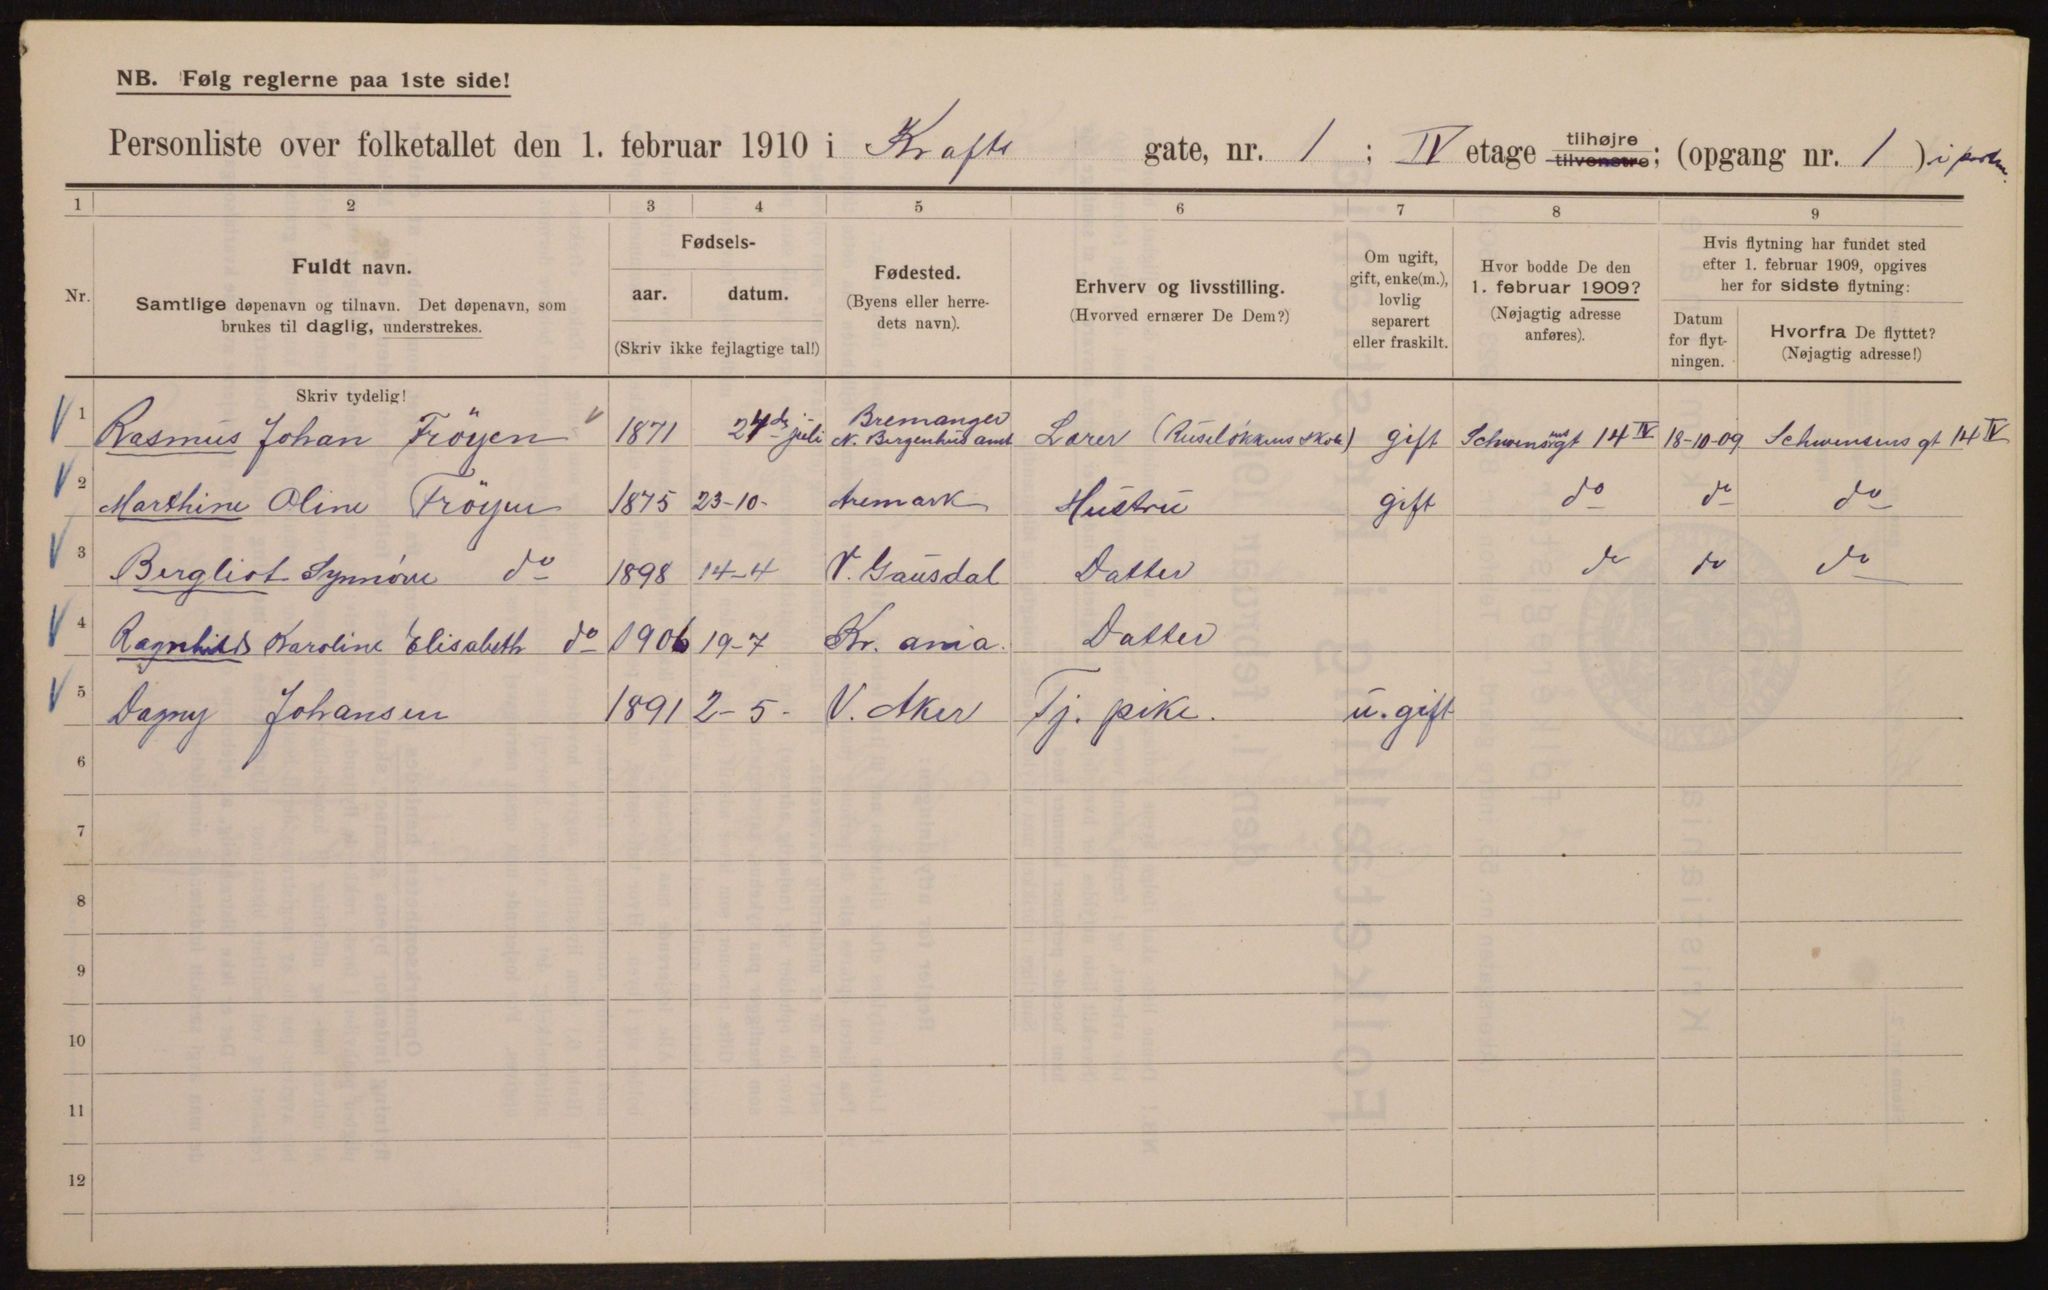 NB. Følg reglerne paa 1ste side!
Personliste over folketallet den 1. februar 1910 i Krafts gate, nr. 1 ; IV etage tilhøjre tilvenstre; (opgang nr. 1 ) i
1 2 3 4 5 6 7 8 9
Nr.
Fuldt navn.
Samtlige døpenavn og tilnavn. Det døpenavn, som
brukes til daglig, understrekes.
Fødsels-
aar. datum.
(Skriv ikke fejlagtige tal!)
Fødested.
(Byens eller herre-
dets navn).
Erhverv og livsstilling.
(Hvorved ernærer De Dem?)
Om ugift,
gift, enke(m.),
lovlig
separert
eller fraskilt.
Hvor bodde De den
1. februar 1909?
(Nøjagtig adresse
anføres).
Hvis flytning har fundet sted
efter 1. februar 1909, opgives
her for sidste flytning:
Datum
for flyt-
ningen.
Hvorfra De flyttet?
(Nøjagtig adresse!)
Skriv tydelig!
1 Rasmus Johan Fröyen 1871 24de juli Bremanger N. Bergenhus amt Lærer (Ruseløkkens skole) gift Schwensensgt 14 IV 18-10-09 Schwensens gt 14 IV
2 Marthine Oline Fröyen 1875 23-10- Aremark Hustru gift do do do
3 Bergliot Synnøve do 1898 14-4 V. Gausdal Datter do do do
4 Ragnhild Karoline Elisabeth do 1906 19-7 Kr. ania. Datter
5 Dagny Johansen 1891 2-5- V. Aker Tj. pike. u. gift
6
7
8
9
10
11
12